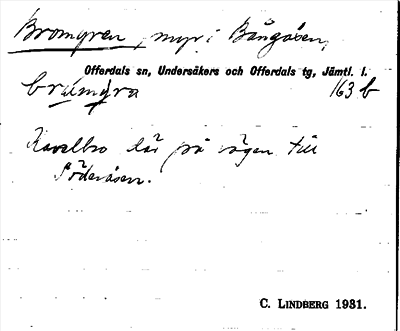 Bromyren, myr i Bångåsen,
Offerdals sn, Undersåkers och Offerdals tg, Jämtl. l.
brùmýra 163 b
Kavelbro där på vägen till
Söderåsen.
C. LINDBERG 1931.